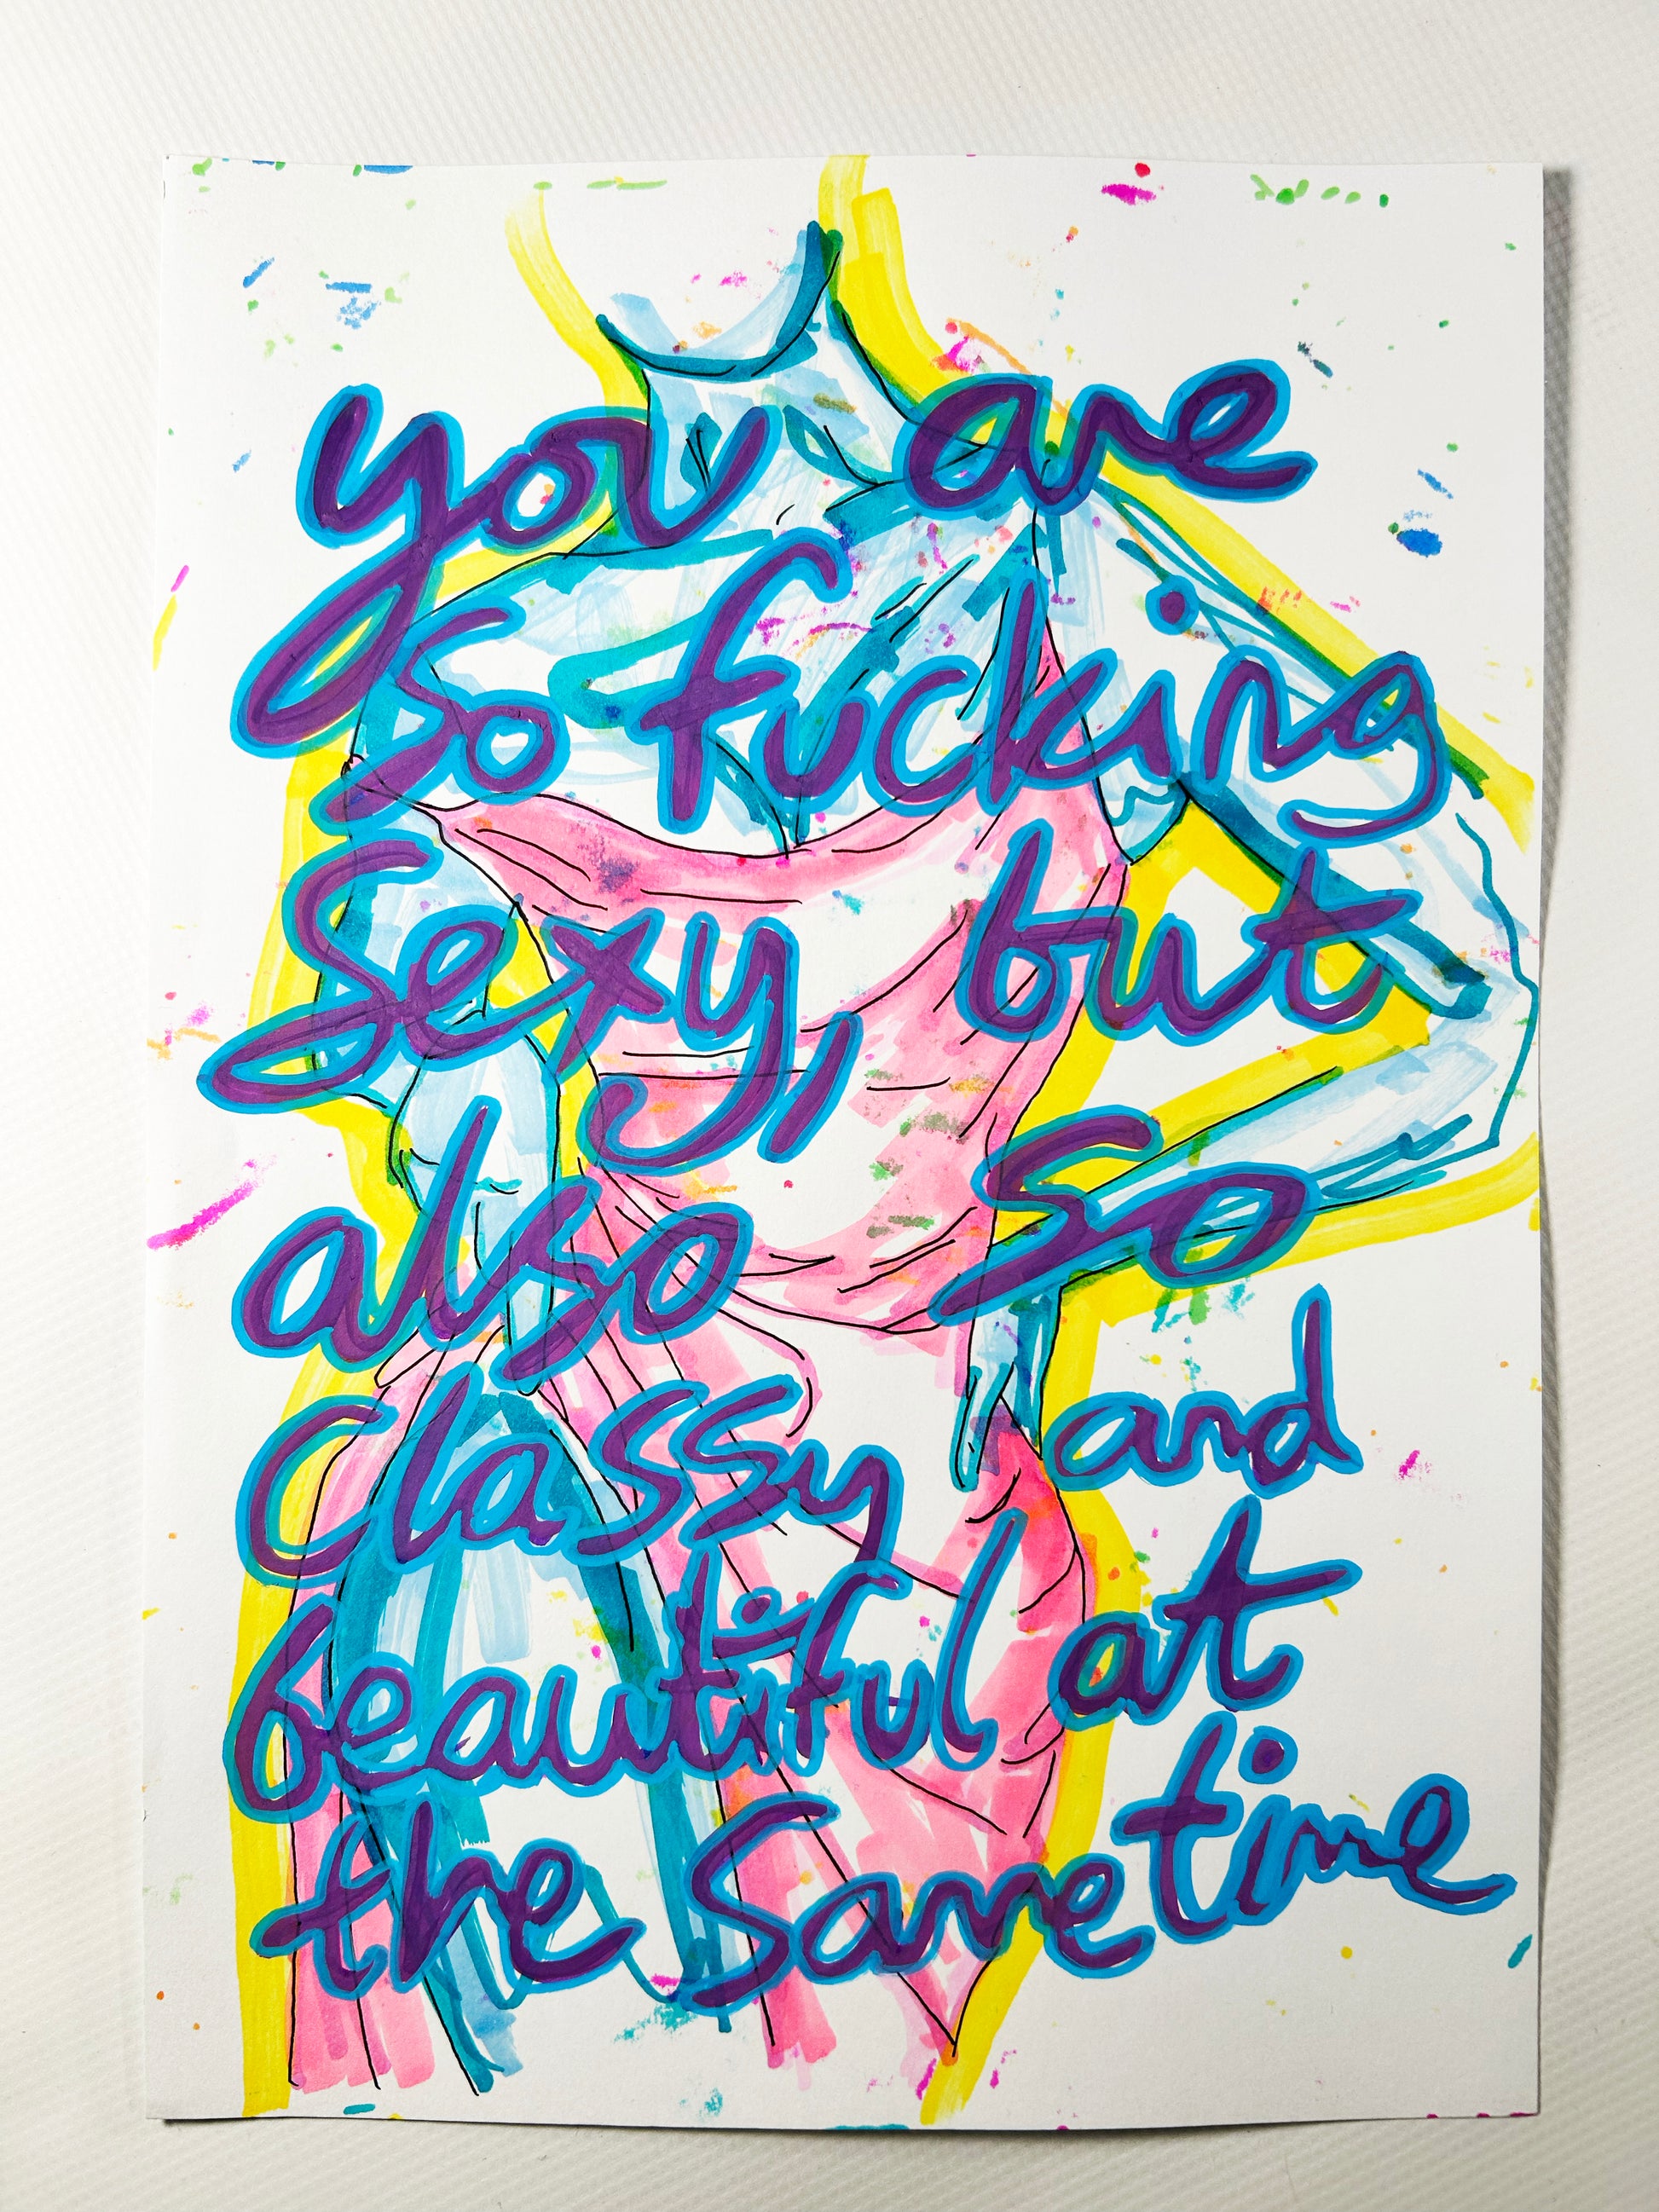 you are
so fucking
Sexy, but
also so
Classy and
beautiful at
the Same time